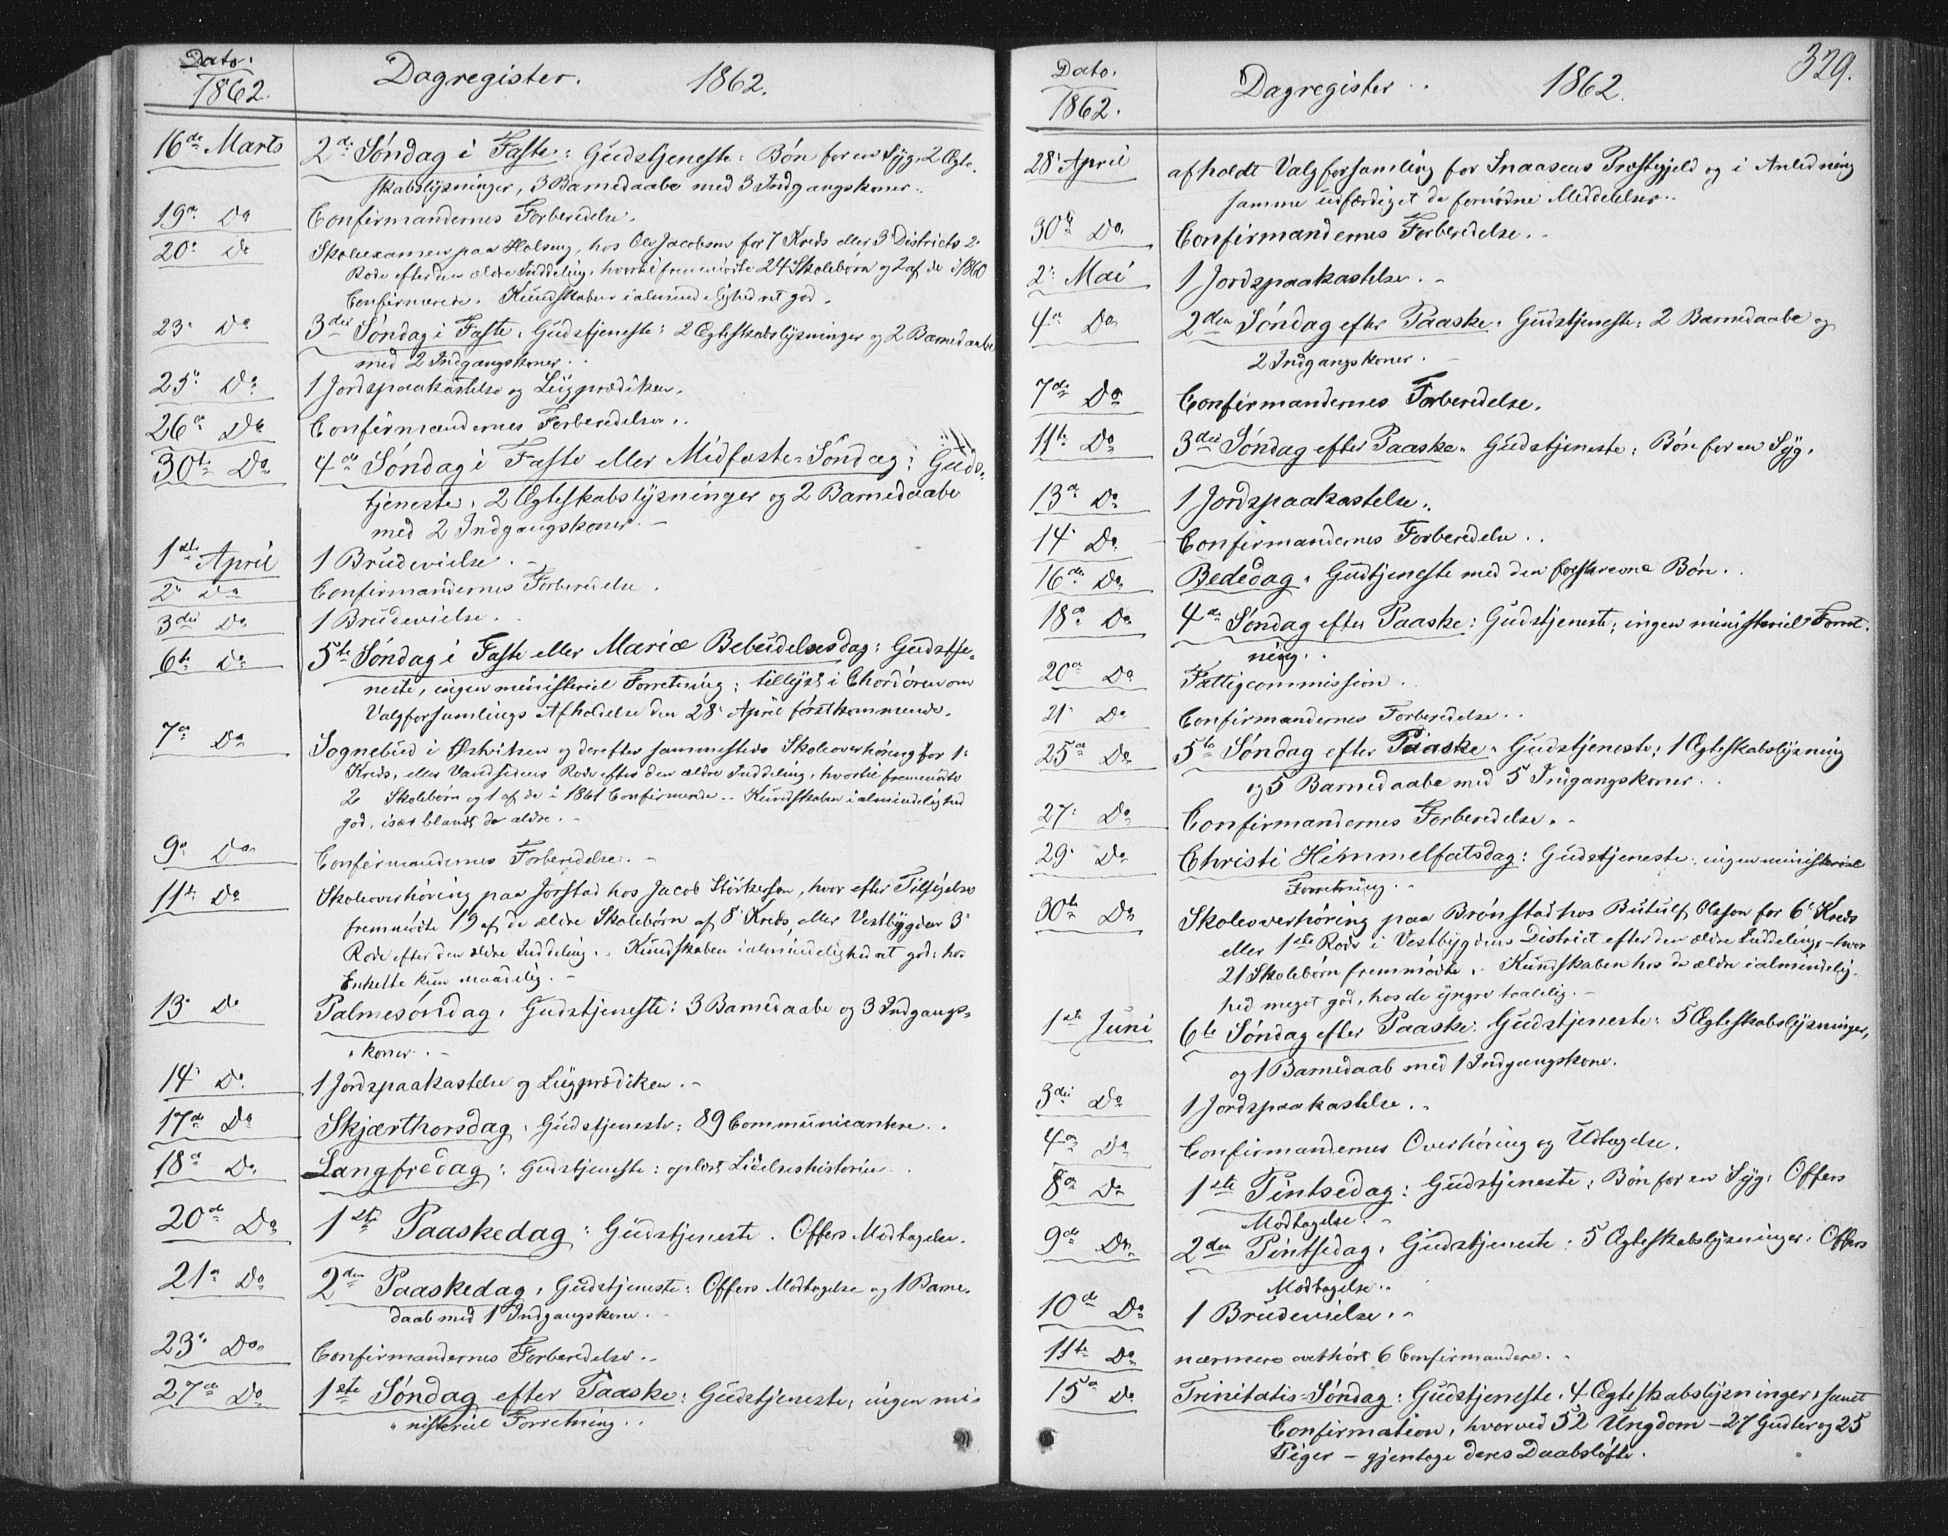 Dato.
1862. Dagregister. 1862.
16de Marts 2den Søndag i Faste: Gudstjeneste: Bøn for en Syg, 2 Ægte-
skabslysninger, 3 Barnedaabe med 3 Indgangskoner.
19a Do Confirmandernes Forberedelse.
20. Do Skoleexamen paa Holsing, hos Ole Jacobsen for 7 Kreds eller 3die Districts 2.
Rode efter den ældre Inddeling, hvortil fremmødte 24 Skolebørn og 2 af de i 1860
Confirmerede. Kundskaben i almindelighed ret god.
23. Do 3die Søndag i Faste. Gudstjeneste: 2 Ægteskabslysninger og 2 Barnedaabe
med 2 Indgangskoner.
25. Do 1 Jordspaakastelse og Liigprædiken.
26a Do Confirmandernes Forberedelse.
30te Do 4de Søndag i Faste eller Midfaste-Søndag: Guds-
tjeneste, 2 Ægteskabslysninger og 2 Barnedaabe
med 2 Indgangskoner. -
1ste April 1 Brudevielse. -
2. Do Confirmandernes Forberedelse.
3die Do 1 Brudevielse.
6te Do 5te Søndag i Faste eller Mariæ Bebudelsesdag: Gudstje-
neste, ingen ministeriel Forretning; tillyst i Chordøren om
Valgforsamlings Afholdelse den 28. April førstkommende.
7a Do Sognebud i Østviksen og derefter sammesteds Skoleoverhøring for 1.
Kreds, eller Vandsidens Rode efter den ældre Inddeling, hvortil fremmødte
2 Skolebørn og 1 af de i 1861 Confirmerede.. Kundskaben i almindelighed
god, især blandt de ældre. -
9a Do Confirmandernes Forberedelse. -
11te Do Skoleoverhøring paa Jørstad hos Jacob Størkersen, hvor efter Tilsigelse
fremmødte 19 af de ældre Skolebørn af 8. Kreds, eller Vestbygdens 3.
Rode efter den ældre Inddeling.. Kundskaben i almindelighed ret god: hos
Enkelte kun maadelig. -
13. Do Palmesøndag, Gudstjeneste: 3 Barnedaabe og 3 Indgangs-
koner. -
14. Do 1 Jordspaakastelse og Liigprædiken. -
17de Do Skjærthorsdag. Gudstjeneste: 89 Communicantere.
18a Do Langfredag: Gudstjeneste: oplæst Lidelseshistorien.
20de Do 1ste Paaskedag: Gudstjeneste. Offers Modtagelse.
21a Do 2den Paaskedag, Gudstjeneste: Offers Modtagelse og 1 Barne-
daab med 1 Indgangskone.
23. Do Confirmandernes Forberedelse.
27a Do 1ste Søndag efter Paaske: Gudstjeneste; ingen mi-
nisteriel Forretning.
329.
Dato.
1862. Dagregister. 1862.
28. April afholdt Valgforsamling for Snaasens Præstegjeld og i Anledning
samme udfærdiget de fornødne Meddelelser.
30te Do Confirmandernes Forberedelse.
2. Mai 1 Jordspaakastelse. -
4a Do 2den Søndag efter Paaske. Gudstjeneste: 2 Barnedaabe og
2 Indgangskoner. -
7de Do Confirmandernes Forberedelse.
11te Do 3die Søndag efter Paaske. Gudstjeneste: Bøn for en Syg.
13a Do 1 Jordspaakastelse.
14. Do Confirmandernes Forberedelse.
16de Do Bededag. Gudtjeneste med den foreskrevne Bøn.
18a Do 4de Søndag efter Paaske: Gudstjeneste; ingen ministeriel Forret-
ning.
20a Do Fattigcommission.
21. Do Confirmandernes Forberedelse.
25a Do 5te Søndag efter Paaske. Gudstjeneste; 1 Ægteskabslysning
og 5 Barnedaabe med 5 Indgangskoner.
27. Do Confirmandernes Forberedelse. -
29. Do Christi Himmelfatsdag: Gudstjeneste; ingen ministeriel
Forretning.
30te Do Skoleoverhøring paa Brønstad hos Butulf Olsson for 6. Kreds
eller 1ste Rode i Vestbygdens District efter den ældre Inddeling, - hvor
21 Skolebørn fremmødte. Kundskaben hos de ældre i almindelig-
hed meget god, hos de yngre taalelig. -
1ste Juni 6te Søndag efter Paaske. Gudstjeneste: 5 Ægteskabslysninger,
og 1 Barnedaab med 1 Indgangskone.
3die Do 1 Jordspaakastelse.
4a Do Confirmandernes Overhøring og Udtagelse.
8a Do 1ste Pintsedag: Gudstjeneste; Bøn for en Syg. Offers
Modtagelse. -
9de Do 2den Pintsedag. Gudstjeneste. 5 Ægteskabslysninger. Offers
Modtagelse.
10de Do 1 Brudevielse.
11te Do nærmere overhørt 6 Confirmandere. -
15a Do Trinitatis-Søndag: Gudstjeneste. 4 Ægteskabslysninger, samt
Confirmation, hvorved 52 Ungdom - 27 Gutter og 25
Piger - gjentoge deres Daabsløfte.